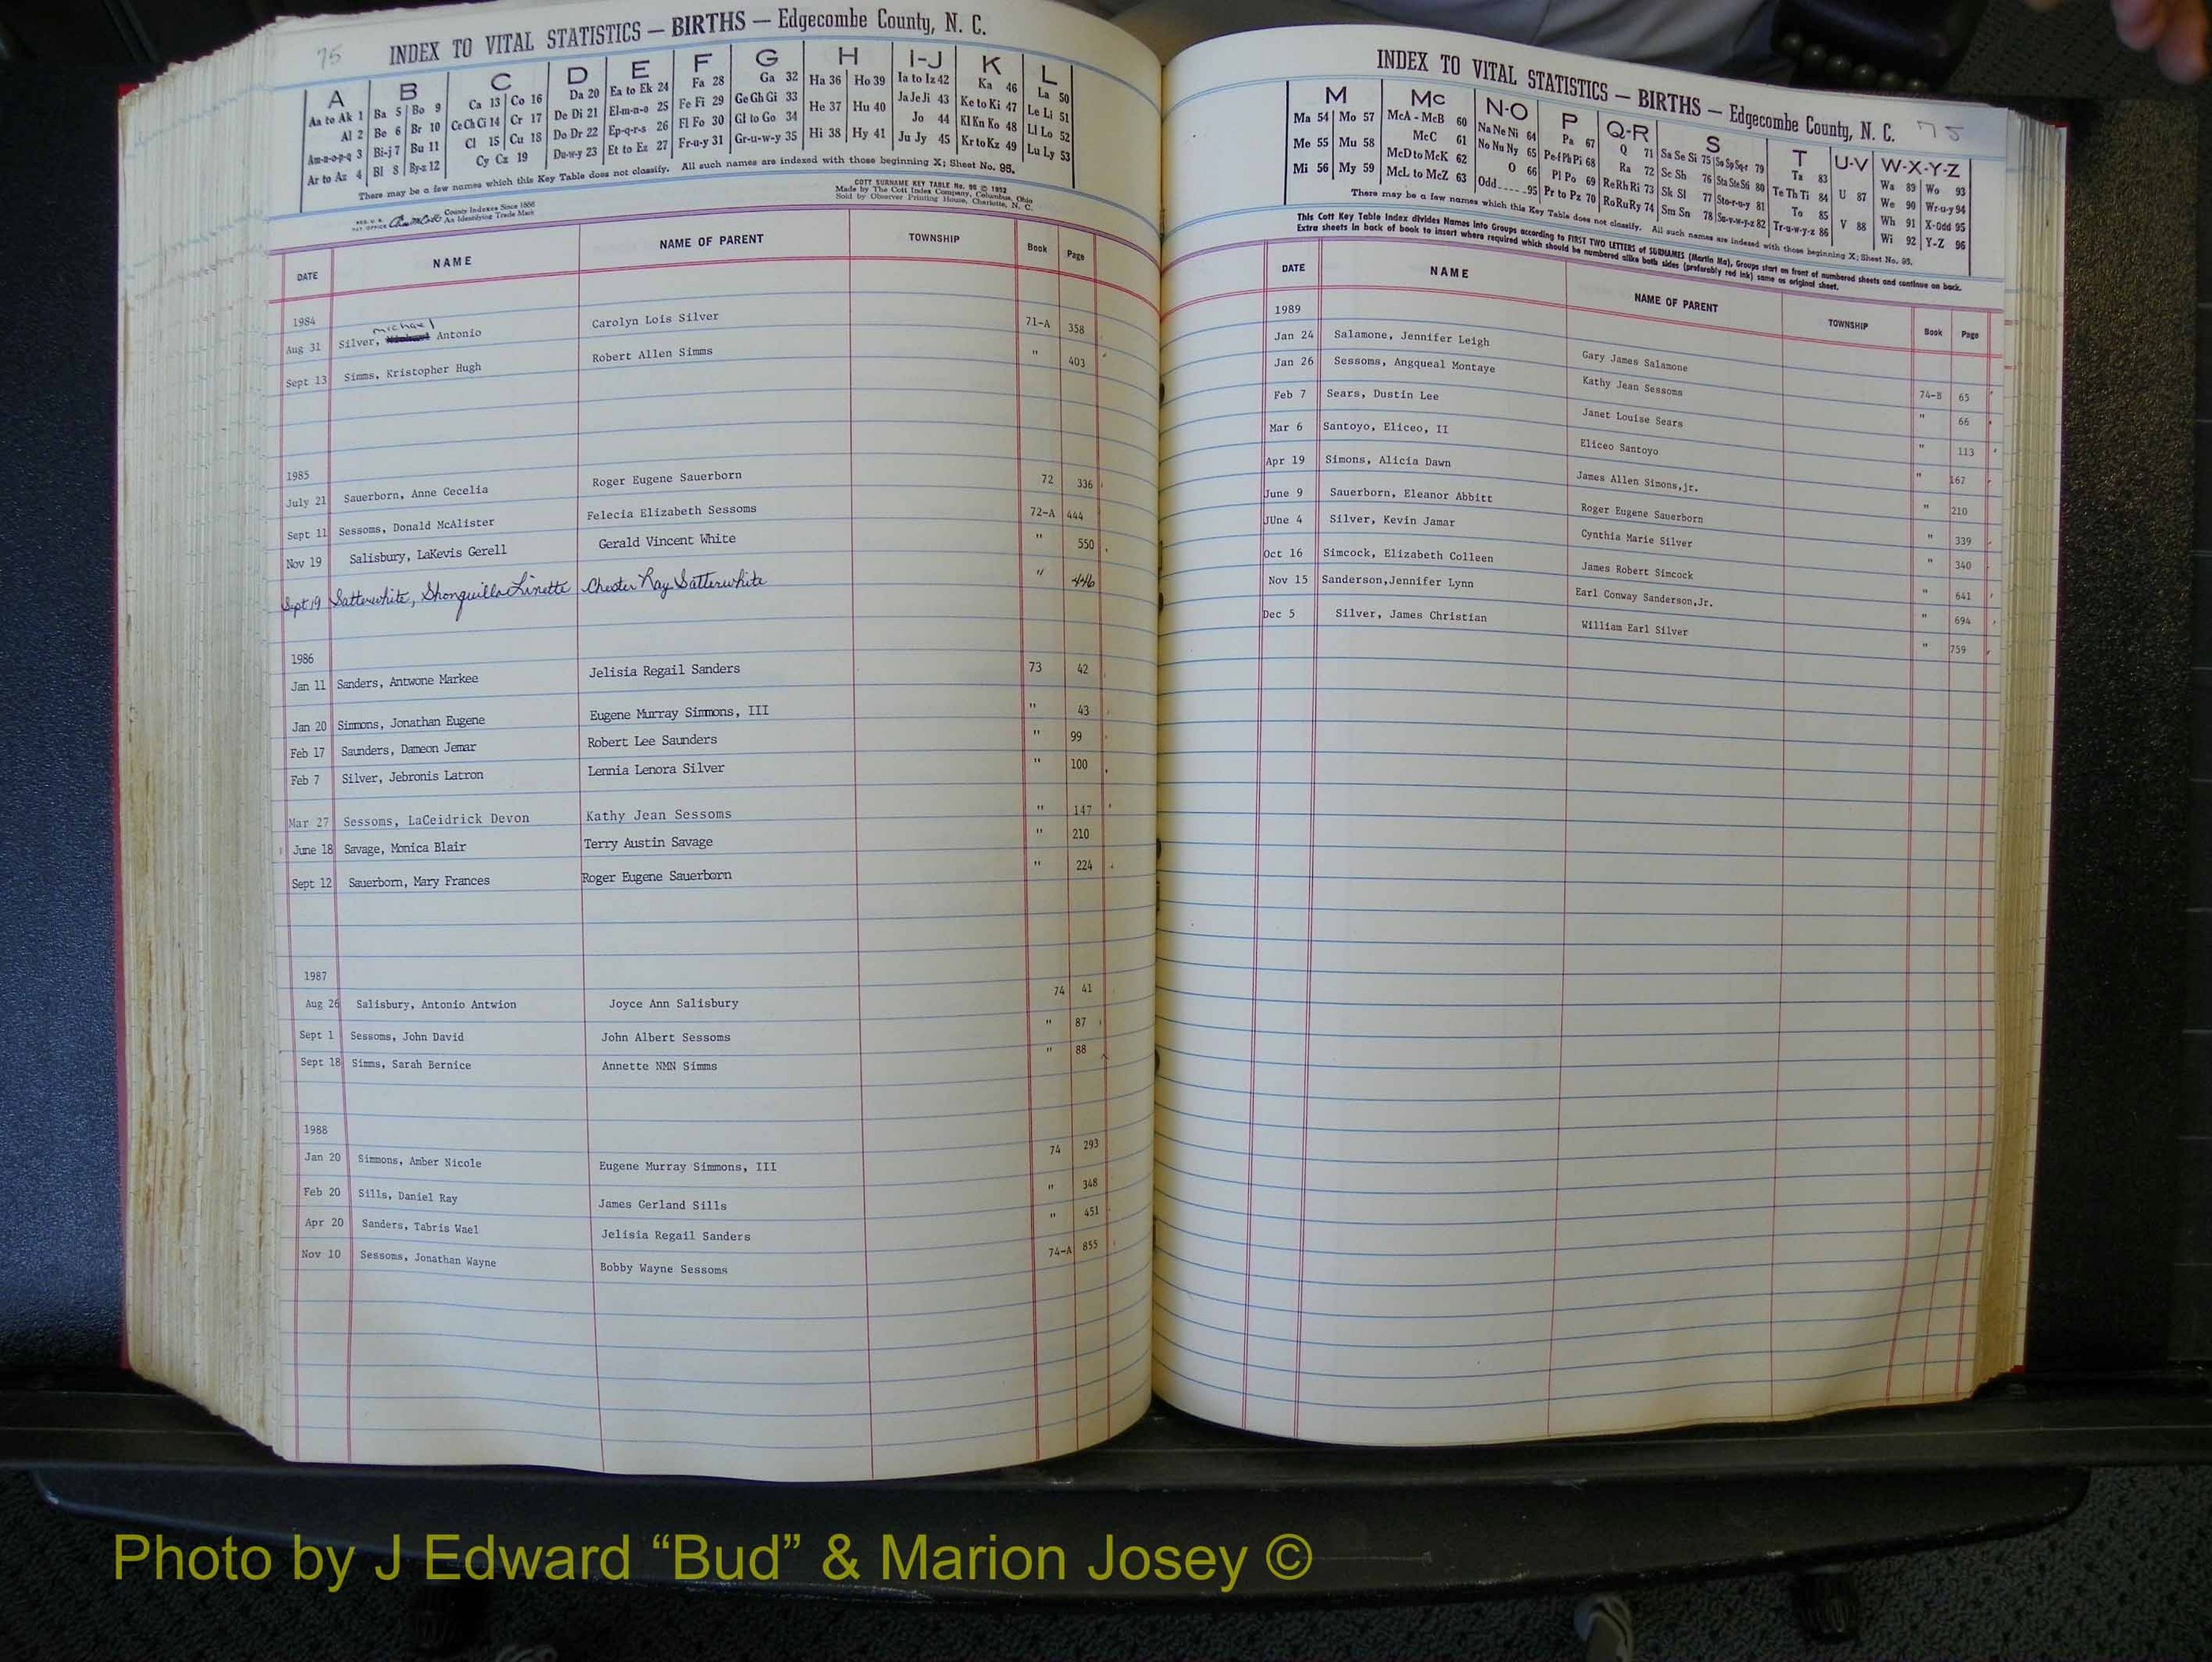 75
INDEX TO VITAL STATISTICS — BIRTHS — Edgecombe County, N. C.
A B C D E F G H I-J K L
Aa to Ak 1 Ba 5 Bo 9 Ca 13 Co 16 Da 20 Ea to Ek 24 Fa 28 Ga 32 Ha 36 Ho 39 Ia to Iz 42 Ka 46 La 50
Al 2 Be 6 Br 10 Ce Ch Ci 14 Cr 17 De Di 21 El-m-n-o 25 Fe Fi 29 Ge Gh Gi 33 He 37 Hu 40 Ja Je Ji 43 Ke to Ki 47 Le Li 51
Am-n-o-p-q 3 Bi-j 7 Bu 11 Cl 15 Cu 18 Do Dr 22 Ep-q-r-s 26 Fl Fo 30 Gl to Go 34 Hi 38 Hy 41 Jo 44 Kl Kn Ko 48 Ll Lo 52
Ar to Az 4 Bl 8 By-z 12 Cy Cz 19 Du-w-y 23 Et to Ez 27 Fr-u-y 31 Gr-u-w-y 35 Ju Jy 45 Kr to Kz 49 Lu Ly 53
There may be a few names which this Key Table does not classify. All such names are indexed with those beginning X; Sheet No. 95.
COTT SURNAME KEY TABLE No. 96 © 1952
Made by The Cott Index Company, Columbus, Ohio
Sold by Observer Printing House, Charlotte, N. C.
County Indexes Since 1888
An Identifying Trade Mark
DATE NAME NAME OF PARENT TOWNSHIP Book Page
1984
michael
Aug 31 Silver, Antonio Carolyn Lois Silver 71-A 358
Sept 13 Simms, Kristopher Hugh Robert Allen Simms " 403
1985
July 21 Sauerborn, Anne Cecelia Roger Eugene Sauerborn 72 336
Sept 11 Sessoms, Donald McAlister Felecia Elizabeth Sessoms 72-A 444
Nov 19 Salisbury, LaKevis Gerell Gerald Vincent White " 550
Sept 19 Satterwhite, Shonquilla Linette Chester Ray Satterwhite " 446
1986
Jan 11 Sanders, Antwone Markee Jelisia Regail Sanders 73 42
Jan 20 Simmons, Jonathan Eugene Eugene Murray Simmons, III " 43
Feb 17 Saunders, Dameon Jemar Robert Lee Saunders " 99
Feb 7 Silver, Jebronis Latron Lennia Lenora Silver " 100
Mar 27 Sessoms, LaCeidrick Devon Kathy Jean Sessoms " 147
June 18 Savage, Monica Blair Terry Austin Savage " 210
Sept 12 Sauerborn, Mary Frances Roger Eugene Sauerborn " 224
1987
Aug 26 Salisbury, Antonio Antwion Joyce Ann Salisbury 74 41
Sept 1 Sessoms, John David John Albert Sessoms " 87
Sept 18 Simms, Sarah Bernice Annette NMN Simms " 88
1988
Jan 20 Simmons, Amber Nicole Eugene Murray Simmons, III 74 293
Feb 20 Sills, Daniel Ray James Gerland Sills " 348
Apr 20 Sanders, Tabris Wael Jelisia Regail Sanders " 451
Nov 10 Sessoms, Jonathan Wayne Bobby Wayne Sessoms 74-A 855
INDEX TO VITAL STATISTICS — BIRTHS — Edgecombe County, N. C. 75
M Mc N-O P Q-R S T U-V W-X-Y-Z
Ma 54 Mo 57 McA - McB 60 Na Ne Ni 64 Pa 67 Q 71 Sa Se Si 75 So Sp Sq-r 79 Ta 83 U 87 Wa 89 Wo 93
Me 55 Mu 58 McC 61 No Nu Ny 65 Pe-f Ph Pi 68 Ra 72 Sc Sh 76 Sta Ste Sti 80 Te Th Ti 84 V 88 We 90 Wr-u-y 94
Mi 56 My 59 McD to McK 62 O 66 Pl Po 69 Re Rh Ri 73 Sk Sl 77 Sto-r-u-y 81 To 85 Wh 91 X-Odd 95
McL to McZ 63 Odd 95 Pr to Pz 70 Ro Ru Ry 74 Sm Sn 78 Su-v-w-y-z 82 Tr-u-w-y-z 86 Wi 92 Y-Z 96
There may be a few names which this Key Table does not classify. All such names are indexed with those beginning X; Sheet No. 95.
This Cott Key Table Index divides Names into Groups according to FIRST TWO LETTERS of SURNAMES (Martin Ma), Groups start on front of numbered sheets and continue on back.
Extra sheets in back of book to insert where required which should be numbered alike both sides (preferably red ink) same as original sheet.
DATE NAME NAME OF PARENT TOWNSHIP Book Page
1989
Jan 24 Salamone, Jennifer Leigh Gary James Salamone 74-B 65
Jan 26 Sessoms, Angqueal Montaye Kathy Jean Sessoms " 66
Feb 7 Sears, Dustin Lee Janet Louise Sears " 113
Mar 6 Santoyo, Eliceo, II Eliceo Santoyo " 167
Apr 19 Simons, Alicia Dawn James Allen Simons,jr. " 210
June 9 Sauerborn, Eleanor Abbitt Roger Eugene Sauerborn " 339
JUne 4 Silver, Kevin Jamar Cynthia Marie Silver " 340
Oct 16 Simcock, Elizabeth Colleen James Robert Simcock " 641
Nov 15 Sanderson,Jennifer Lynn Earl Conway Sanderson,Jr. " 694
Dec 5 Silver, James Christian William Earl Silver " 759
Photo by J Edward “Bud” & Marion Josey ©